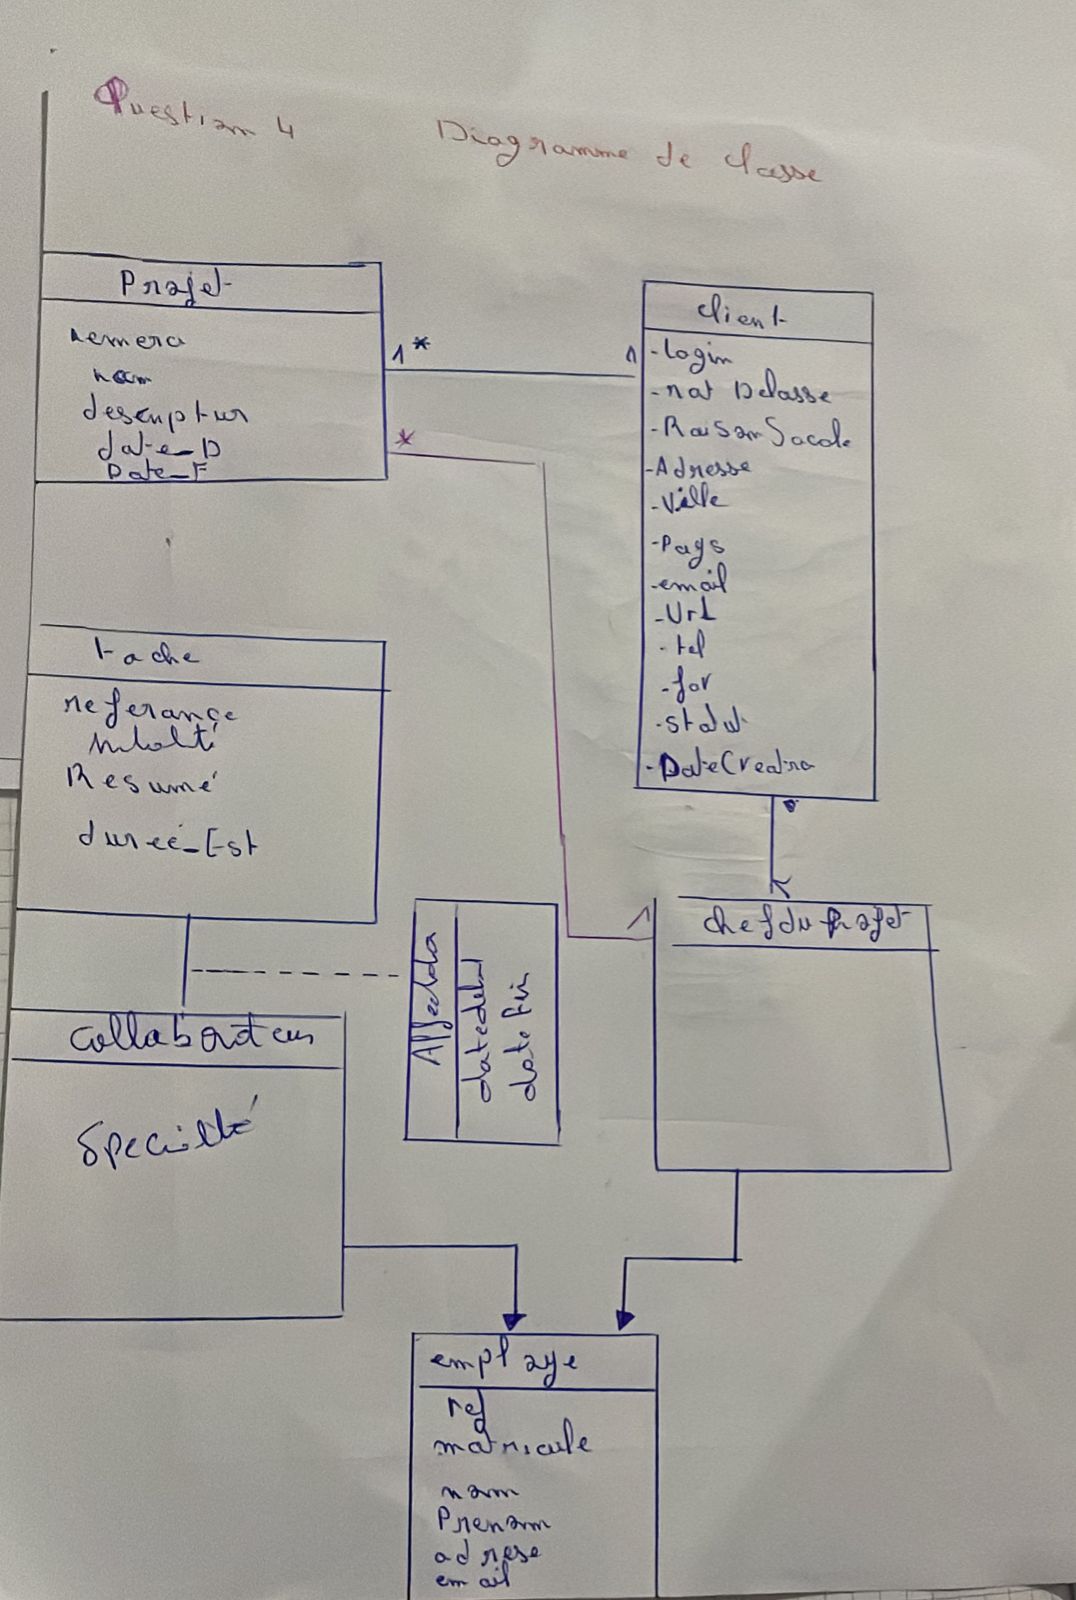 Question 4
Diagramme de classe
Projet
nemero
nom
descriptur
date_D
Date_F
1 *
1
*
client
-login
-mot Depasse
-Raison Sociale
-Adresse
-Ville
-Pays
-email
-Url
-tel
-statut
-DateCreation
tache
referançe
Resumé
dureé_Est
Affecta
datedebut
date fin
1
chef du Projet
collaborateur
Specialté
employe
ref
matricule
nom
Prenom
adrese
email